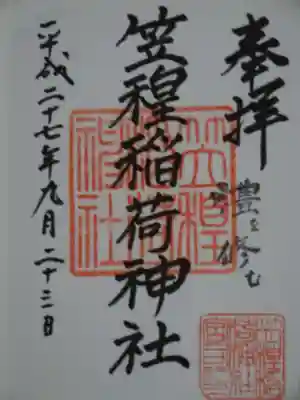 奉拝
禮を修む
笠䅣稲荷神社
平成二十七年九月二十三日